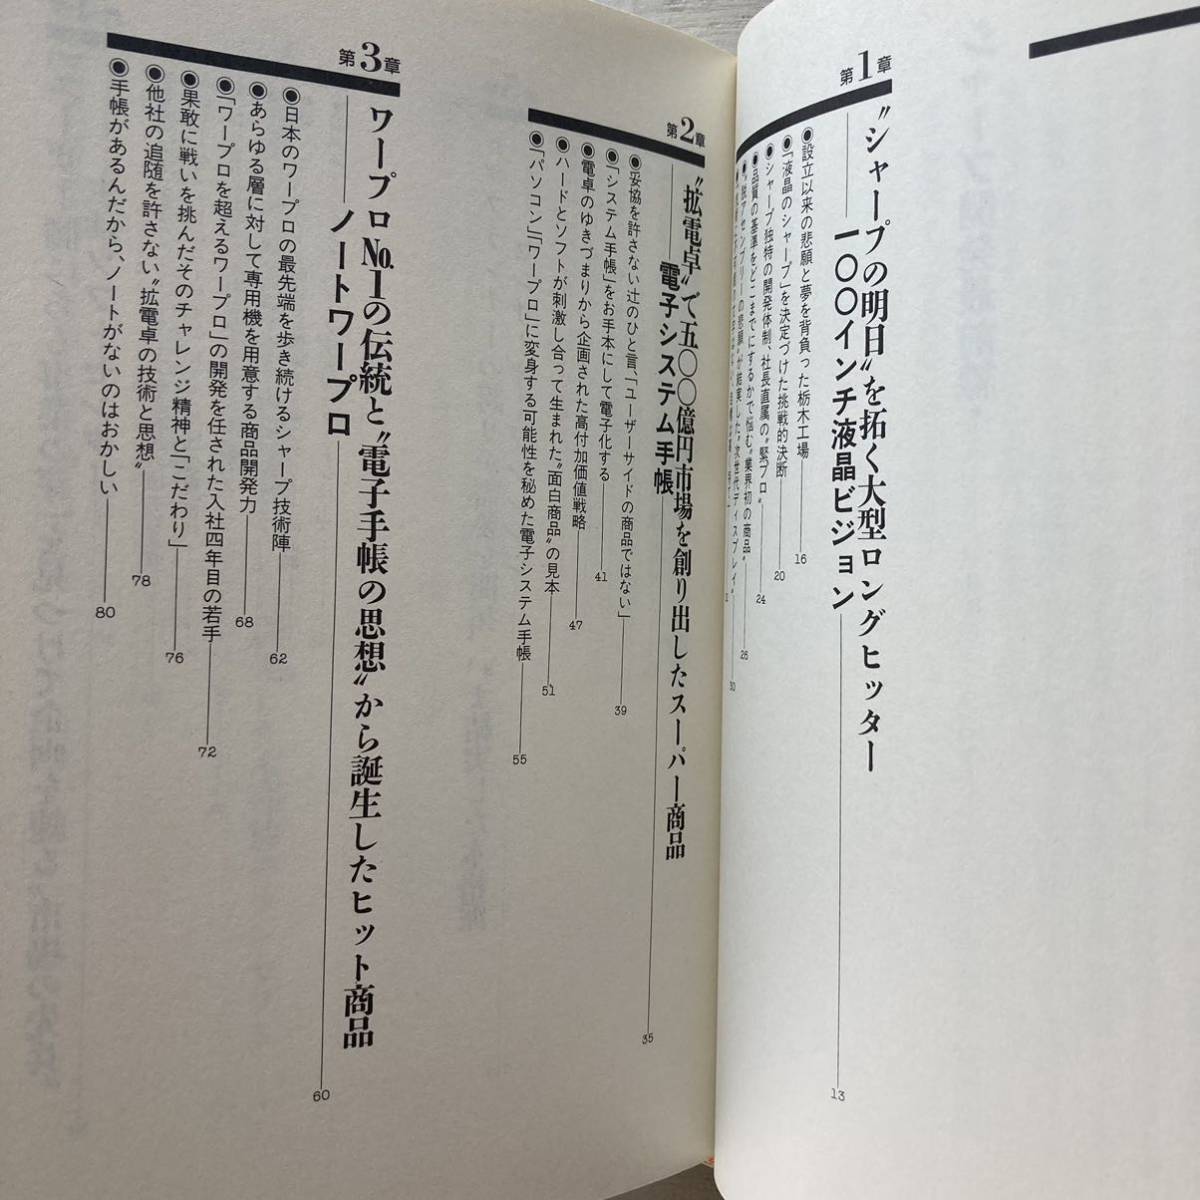 第1章
〝シャープの明日〟を拓く大型ロングヒッター
一〇〇インチ液晶ビジョン 13
◉設立以来の悲願と夢を背負った栃木工場 16
◉「液晶のシャープ」を決定づけた挑戦的決断 20
◉シャープ独特の開発体制、社長直属の〝緊プロ〟 24
◉品質の基準をどこまでにするかで悩む〝業界初の商品〟 26
◉〝脱アセンブリーの悲願〟が結実した〝次世代ディスプレイ〟 30
第2章
〝拡電卓〟で五〇〇億円市場を創り出したスーパー商品
電子システム手帳 35
◉妥協を許さない辻のひと言、「ユーザーサイドの商品ではない」 39
◉「システム手帳」をお手本にして電子化する 41
◉電卓のゆきづまりから企画された高付加価値戦略 47
◉ハードとソフトが刺激し合って生まれた〝面白商品〟の見本 51
◉「パソコン」「ワープロ」に変身する可能性を秘めた電子システム手帳 55
第3章
ワープロNo.1の伝統と〝電子手帳の思想〟から誕生したヒット商品
ノートワープロ 60
◉日本のワープロの最先端を歩き続けるシャープ技術陣 62
◉あらゆる層に対して専用機を用意する商品開発力 68
◉「ワープロを超えるワープロ」の開発を任された入社四年目の若手 72
◉果敢に戦いを挑んだそのチャレンジ精神と「こだわり」 76
◉他社の追随を許さない〝拡電卓の技術と思想〟 78
◉手帳があるんだから、ノートがないのはおかしい 80